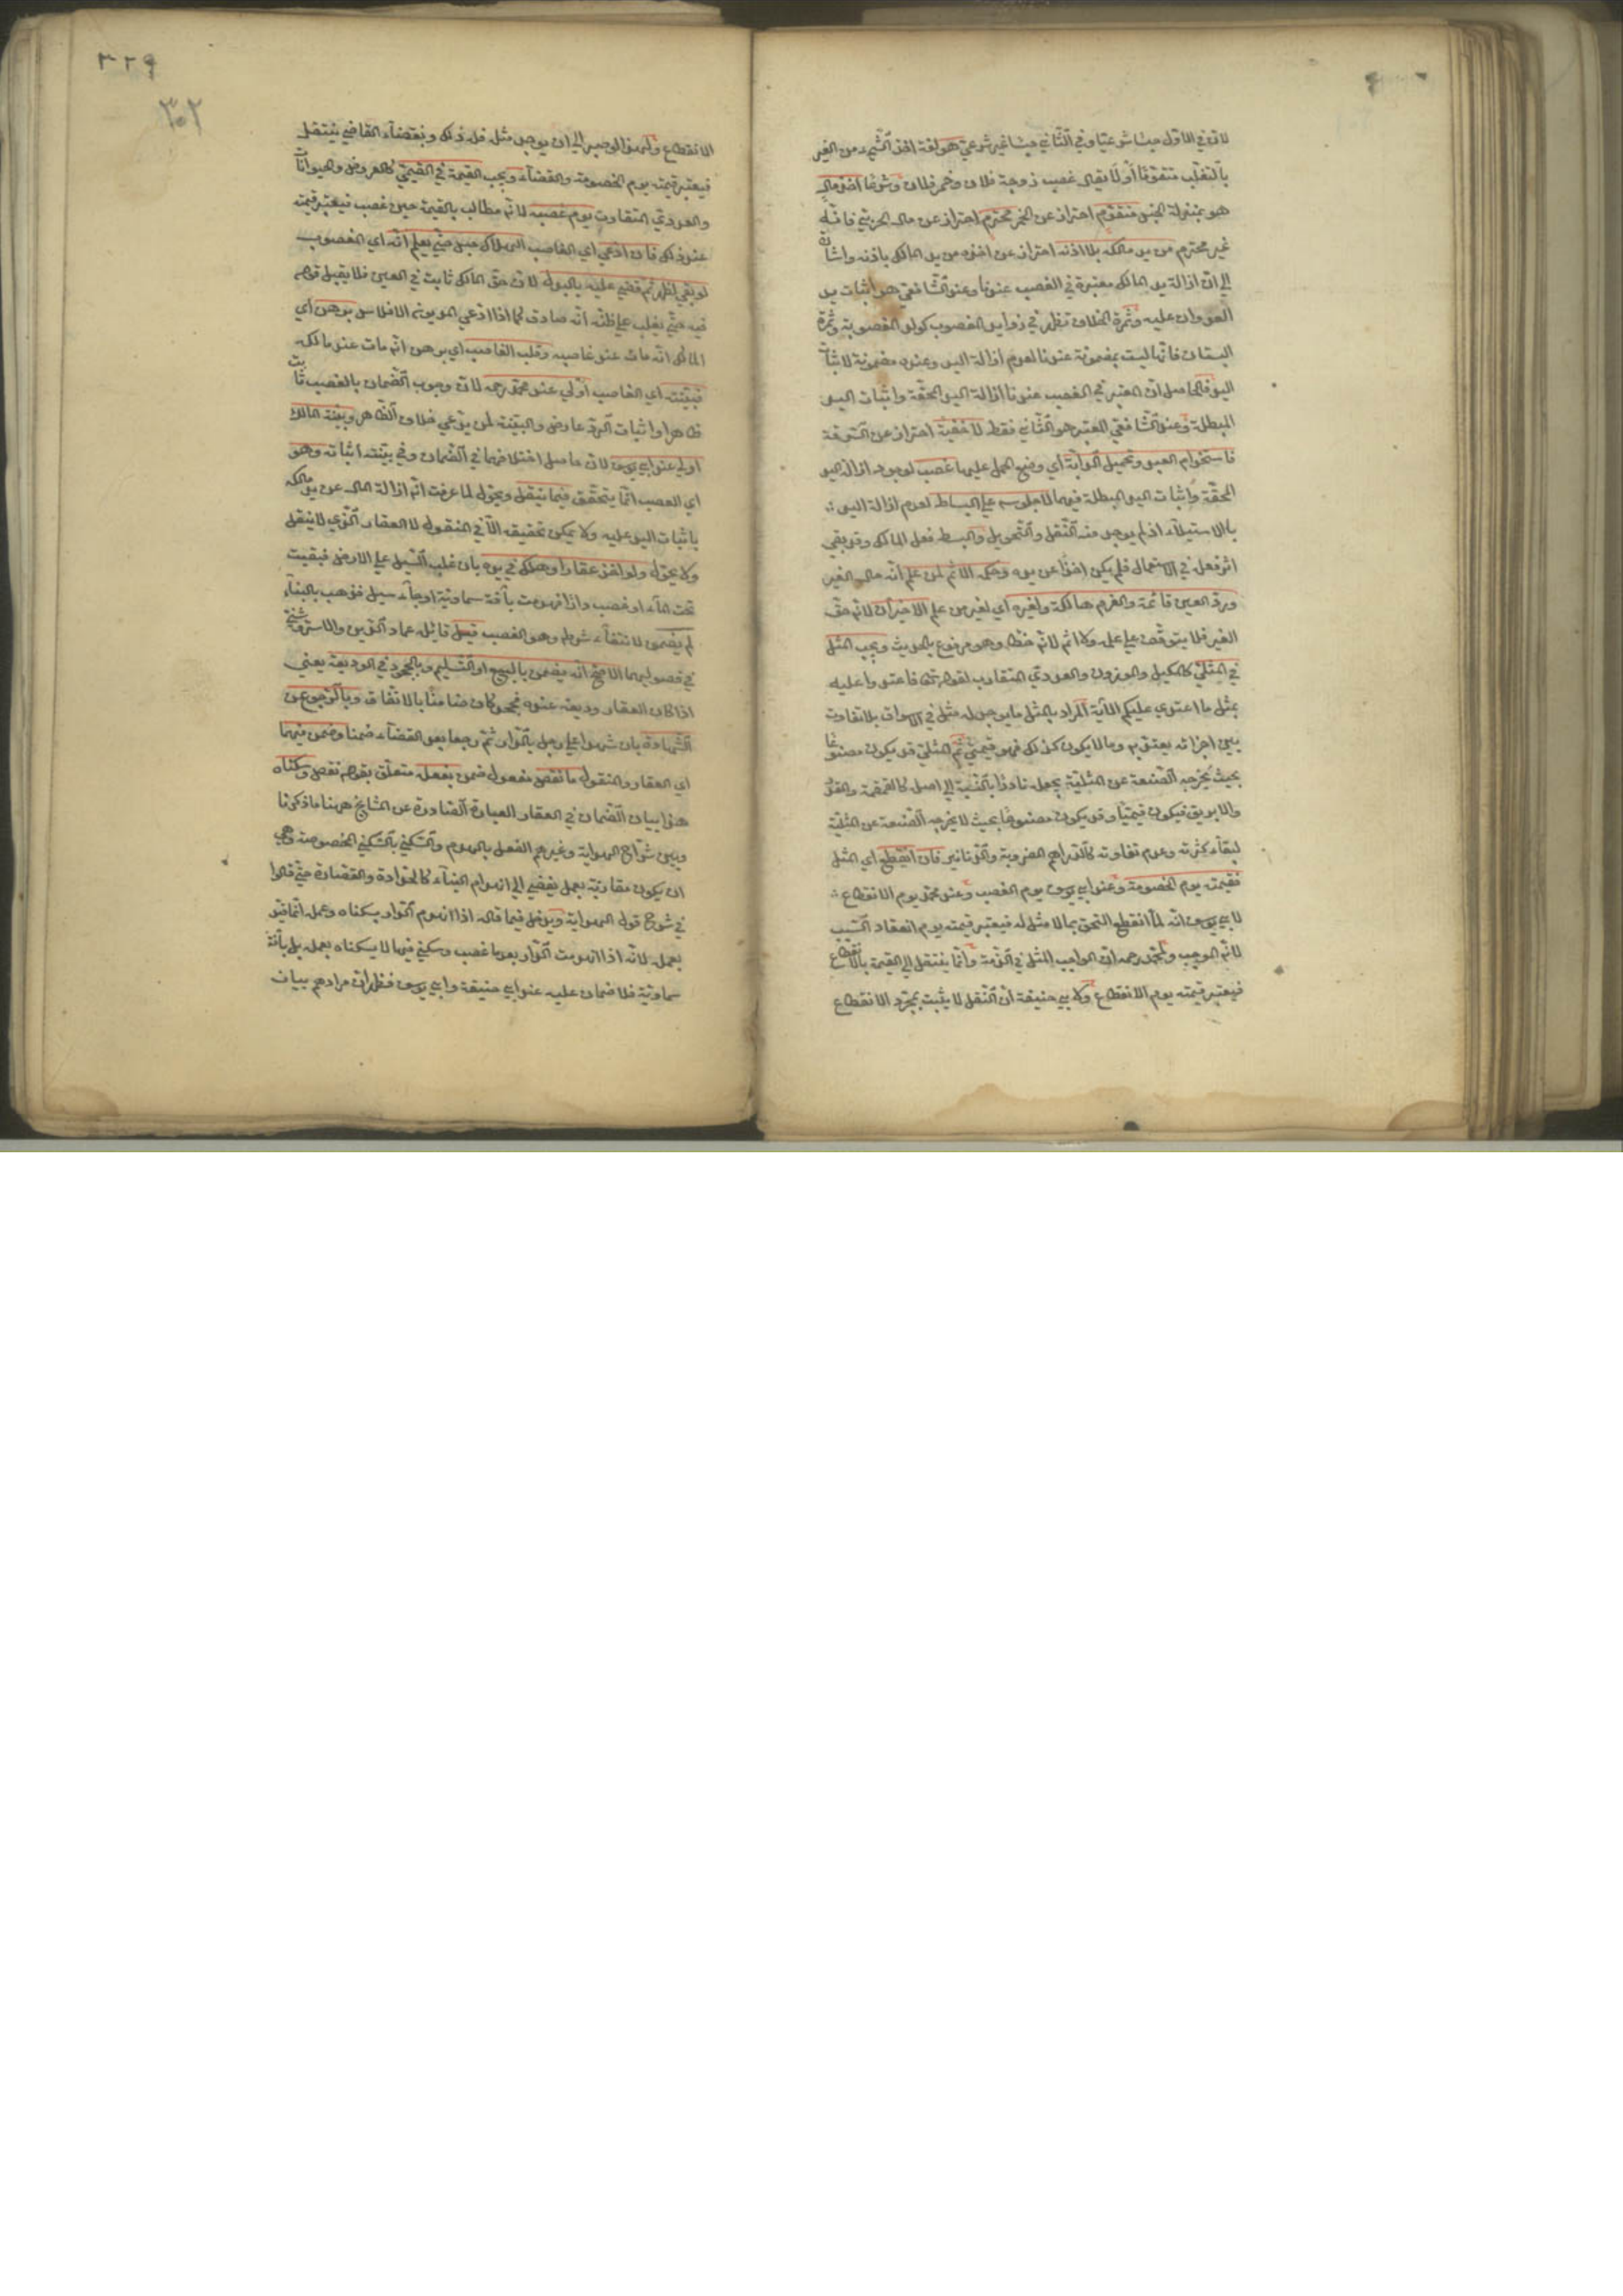 لان في الاول حبسا شرعيا وفي الثاني حبسا غير شرعي هو لغة اخذ الشيء من الغير
بالتغلب متقوما أو لا يقال غصب زوجة فلان وخمر فلان وشرعا اخذ مال
هو بمنزلة الجنس متقوم احتراز عن الخمر محترم احتراز عن مال الحربي فانه
غير محترم من يد مالكه بلا اذنه احتراز عن اخذه من يد المالك باذنه واشارة
الى ان ازالة يد المالك معتبرة في الغصب عندنا وعند الشافعي هو اثبات يد
العدوان عليه وثمرة الخلاف تظهر في زوايد المغصوب كولد المغصوبة وثمرة
البستان فانها ليست بمضمونة عندنا لعدم ازالة اليد وعنده مضمونة لاثبات
اليد فالحاصل ان المعتبر في الغصب عندنا ازالة اليد المحقة واثبات اليد
المبطلة وعند الشافعي المعتبر هو الثاني فقط لا خفية احتراز عن السرقة
فاستخدام العبد وتحميل الدابة اي وضع الحمل عليها غصب لوجود ازالة اليد
المحقة واثبات اليد المبطلة فيهما لا جلوسه على البساط لعدم ازالة اليد
بالاستيلاء اذ لم يوجد منه النقل والتحويل والبسط فعل المالك وقد بقي
اثر فعله في الاستعمال فلم يكن اخذا عن يده وحكمه الاثم لمن علم انه مال الغير
ورد العين قائمة والغرم هالكة ولغيره اي لغير من علم الاخيران لانه حق
الغير فلا يتوقف على علمه ولا اثم لانه خطأ وهو مرفوع بالحديث ويجب المثل
في المثلي كالمكيل والموزون والعددي المتقارب لقوله تعالى فاعتدوا عليه
بمثل ما اعتدي عليكم الآية المراد بالمثل ما يوجد له مثل في الاسواق بلا تفاوت
بين اجزائه يعتد به وما لا يكون كذلك فهو قيمي ثم المثلي قد يكون مصنوعا
بحيث يخرجه الصنعة عن المثلية بجعله نادرا بالنسبة الى اصله كالقمقمة والقدر
والابريق فيكون قيميا وقد يكون مصنوعا بحيث لا يخرجه الصنعة عن المثلية
لبقاء كثرته وعدم تفاوته كالدراهم المضروبة والدنانير فان انقطع اي المثل
فقيمته يوم الخصومة وعند ابي يوسف يوم الغصب وعند محمد يوم الانقطاع
لابي يوسف انه لما انقطع التحق بما لا مثل له فيعتبر قيمته يوم انعقاد السبب
لانه الموجب ولمحمد رحمه ان الواجب المثل في الذمة وانما ينتقل الى القيمة بالانقطاع
فيعتبر قيمته يوم الانقطاع ولابي حنيفة ان النقل لا يثبت بمجرد الانقطاع
٣٢٩
٣٠٢
الانقطاع ولهذا لو صبر الى ان يوجد مثله فله ذلك وبقضاء القاضي ينتقل
فيعتبر قيمته يوم الخصومة والقضاء ويجب القيمة في القيمي كالعروض والحيوانات
والعددي المتفاوت يوم غصبه لانه مطالب بالقيمة حين غصب فيعتبر قيمته
عند ذلك فان ادعى اي الغاصب الهلاك حبس حتى يعلم انه اي المغصوب
لو بقي لظهر ثم قضي عليه بالبدل لان حق المالك ثابت في العين فلا يقبل قوله
فيه حتى يغلب على ظنه انه صادق كما اذا ادعى المديون الافلاس برهن اي
المالك انه مات عند غاصبه وقلب الغاصب اي برهن انه مات عند مالكه
فبينته اي الغاصب اولى عند محمد رحمه لان وجوب الضمان بالغصب ثابت
ظاهرا واثبات الرد عارض والبينة لمن يدعي خلاف الظاهر وبينة المالك
اولى عند ابي يوسف لان حاصل اختلافهما في الضمان وفي بينته اثباته وهو
اي الغصب انما يتحقق فيما ينقل ويحول لما عرفت انه ازالة المال عن يد مالكه
باثبات اليد عليه ولا يمكن تحقيقه الا في المنقول لا العقار الذي لا ينقل
ولا يحول ولو اخذ عقارا وهلك في يده بان غلب السيل على الارض فبقيت
تحت الماء او غصب دارا فهدمت بآفة سماوية او جاء سيل فذهب بالبناء
لم يضمن لانتفاء شرطه وهو الغصب قيل قائله عماد الدين والاستروشني
في فصوليهما الاصح انه يضمن بالبيع والتسليم وبالجحود في الوديعة يعني
اذا كان العقار وديعة عنده فجحد كان ضامنا بالاتفاق وبالرجوع عن
الشهادة بان شهدا على رجل بالدار ثم رجعا بعد القضاء ضمنا وضمن فيهما
اي العقار والمنقول ما نقص مفعول ضمن بفعله متعلق بقوله نقص وسكناه
هذا بيان الضمان في العقار العبارة الصادرة عن المشايخ ههنا ما ذكرنا
وبين شراح الهداية وغيرهم الفعل بالهدم والسكنى بالسكنى المخصوصة وهي
ان يكون مقارنة بعمل يفضي الى انهدام البناء كالحدادة والقصارة حتى قالوا
في شرح قول الهداية ويدخل فيما قاله اذا انهدم الدار بسكناه وعمله انما قيد
بعمله لانه اذا انهدمت الدار بعد ما غصب وسكن فيها لا بسكناه بعمله بل بآفة
سماوية فلا ضمان عليه عند ابي حنيفة وابي يوسف فظهر ان مرادهم ببيان